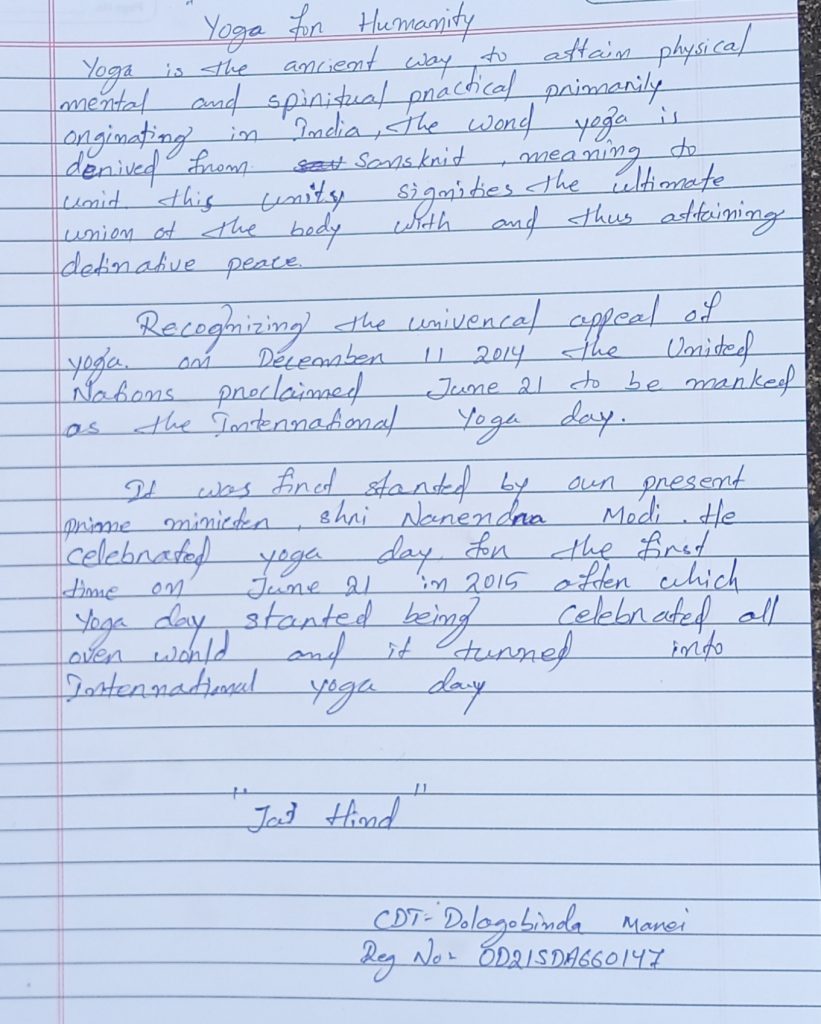 Yoga for Humanity
Yoga is the ancient way to attain physical
mental and spiritual practical primarily
originating in India, the word yoga is
derived from Sanskrit, meaning to
unit. this unity signifies the ultimate
union of the body with and thus attaining
definative peace.
Recoghizing the univercal appeal of
yoga. on December 11 2014 the United
Nations proclaimed June 21 to be marked
as the International Yoga day.
It was first started by our present
prime minister, shri Narendra Modi. He
celebrated yoga day for the first
time on June 21 in 2015 after which
Yoga day started being celebrated all
over world and it turned into
International yoga day
"Jai Hind"
CDT- Dologobinda
Reg No- OD21SDA660147